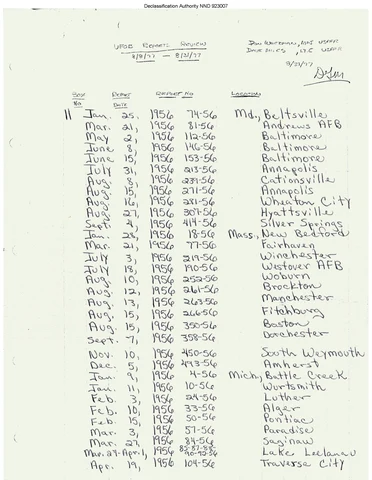 Declassification Authority NND 923007
UFOB REPORTS REVIEW
8/8/77 - 8/23/77
BOX No. REPORT DATE REPORT NO LOCATION
11 Jan. 25, 1956 74-56 Md., Beltsville
Mar. 21, 1956 81-56 Andrews AFB
May 2, 1956 112-56 Baltimore
June 8, 1956 146-56 Baltimore
June 15, 1956 153-56 Baltimore
July 31, 1956 213-56 Annapolis
Aug. 8, 1956 239-56 Cationsville
Aug. 15, 1956 271-56 Annapolis
Aug. 16, 1956 281-56 Wheaton City
Aug. 27, 1956 307-56 Hyattsville
Sept. 4, 1956 414-56 Silver Springs
Jan. 28, 1956 18-56 Mass., New Bedford
Mar. 21, 1956 77-56 Fairhaven
July 3, 1956 219-56 Winchester
July 18, 1956 190-56 Westover AFB
Aug. 10, 1956 252-56 Woburn
Aug. 12, 1956 261-56 Brockton
Aug. 13, 1956 263-56 Manchester
Aug. 15, 1956 266-56 Fitchburg
Aug. 15, 1956 350-56 Boston
Sept. 7, 1956 358-56 Dorchester
Nov. 10, 1956 450-56 South Weymouth
Dec. 5, 1956 473-56 Amherst
Jan. 9, 1956 4-56 Mich., Battle Creek
Jan. 11, 1956 10-56 Wurtsmith
Feb. 3, 1956 24-56 Luther
Feb. 10, 1956 33-56 Alger
Feb. 15, 1956 50-56 Pontiac
Mar. 3, 1956 57-56 Paradise
Mar. 27, 1956 84-56 Saginaw
Mar. 29-Apr. 1, 1956 90-92-56 Lake Leelanau
Apr. 19, 1956 104-56 Traversa City